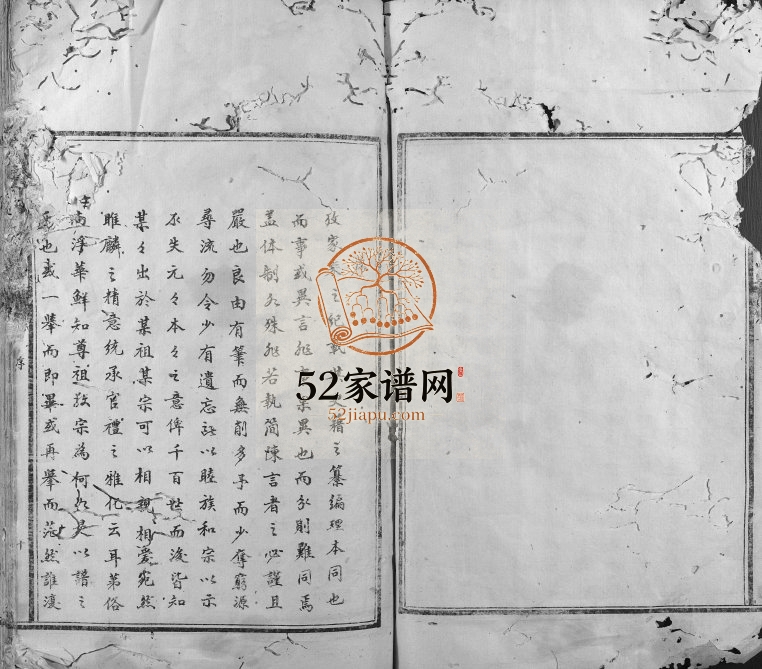 攷家
之
籍之纂編理本同也
而事或異言
異也而
則難同焉
盖体制
殊
若執简陳言者之必謹且
嚴也良由有筆而無削多予而少奪窮源
尋流勿令少有遺忘
以睦族和宗以示
不失元々本々之意俾千百世而後皆知
某々出於某祖某宗可以相親相愛宛然
睢麟之精意統承官禮之雅化云耳第俗
尚浮華鮮知尊祖敬宗為何
是以譜之
也或一舉而即畢或再舉而茫然誰復
序
十
52家谱网
52jiapu.com